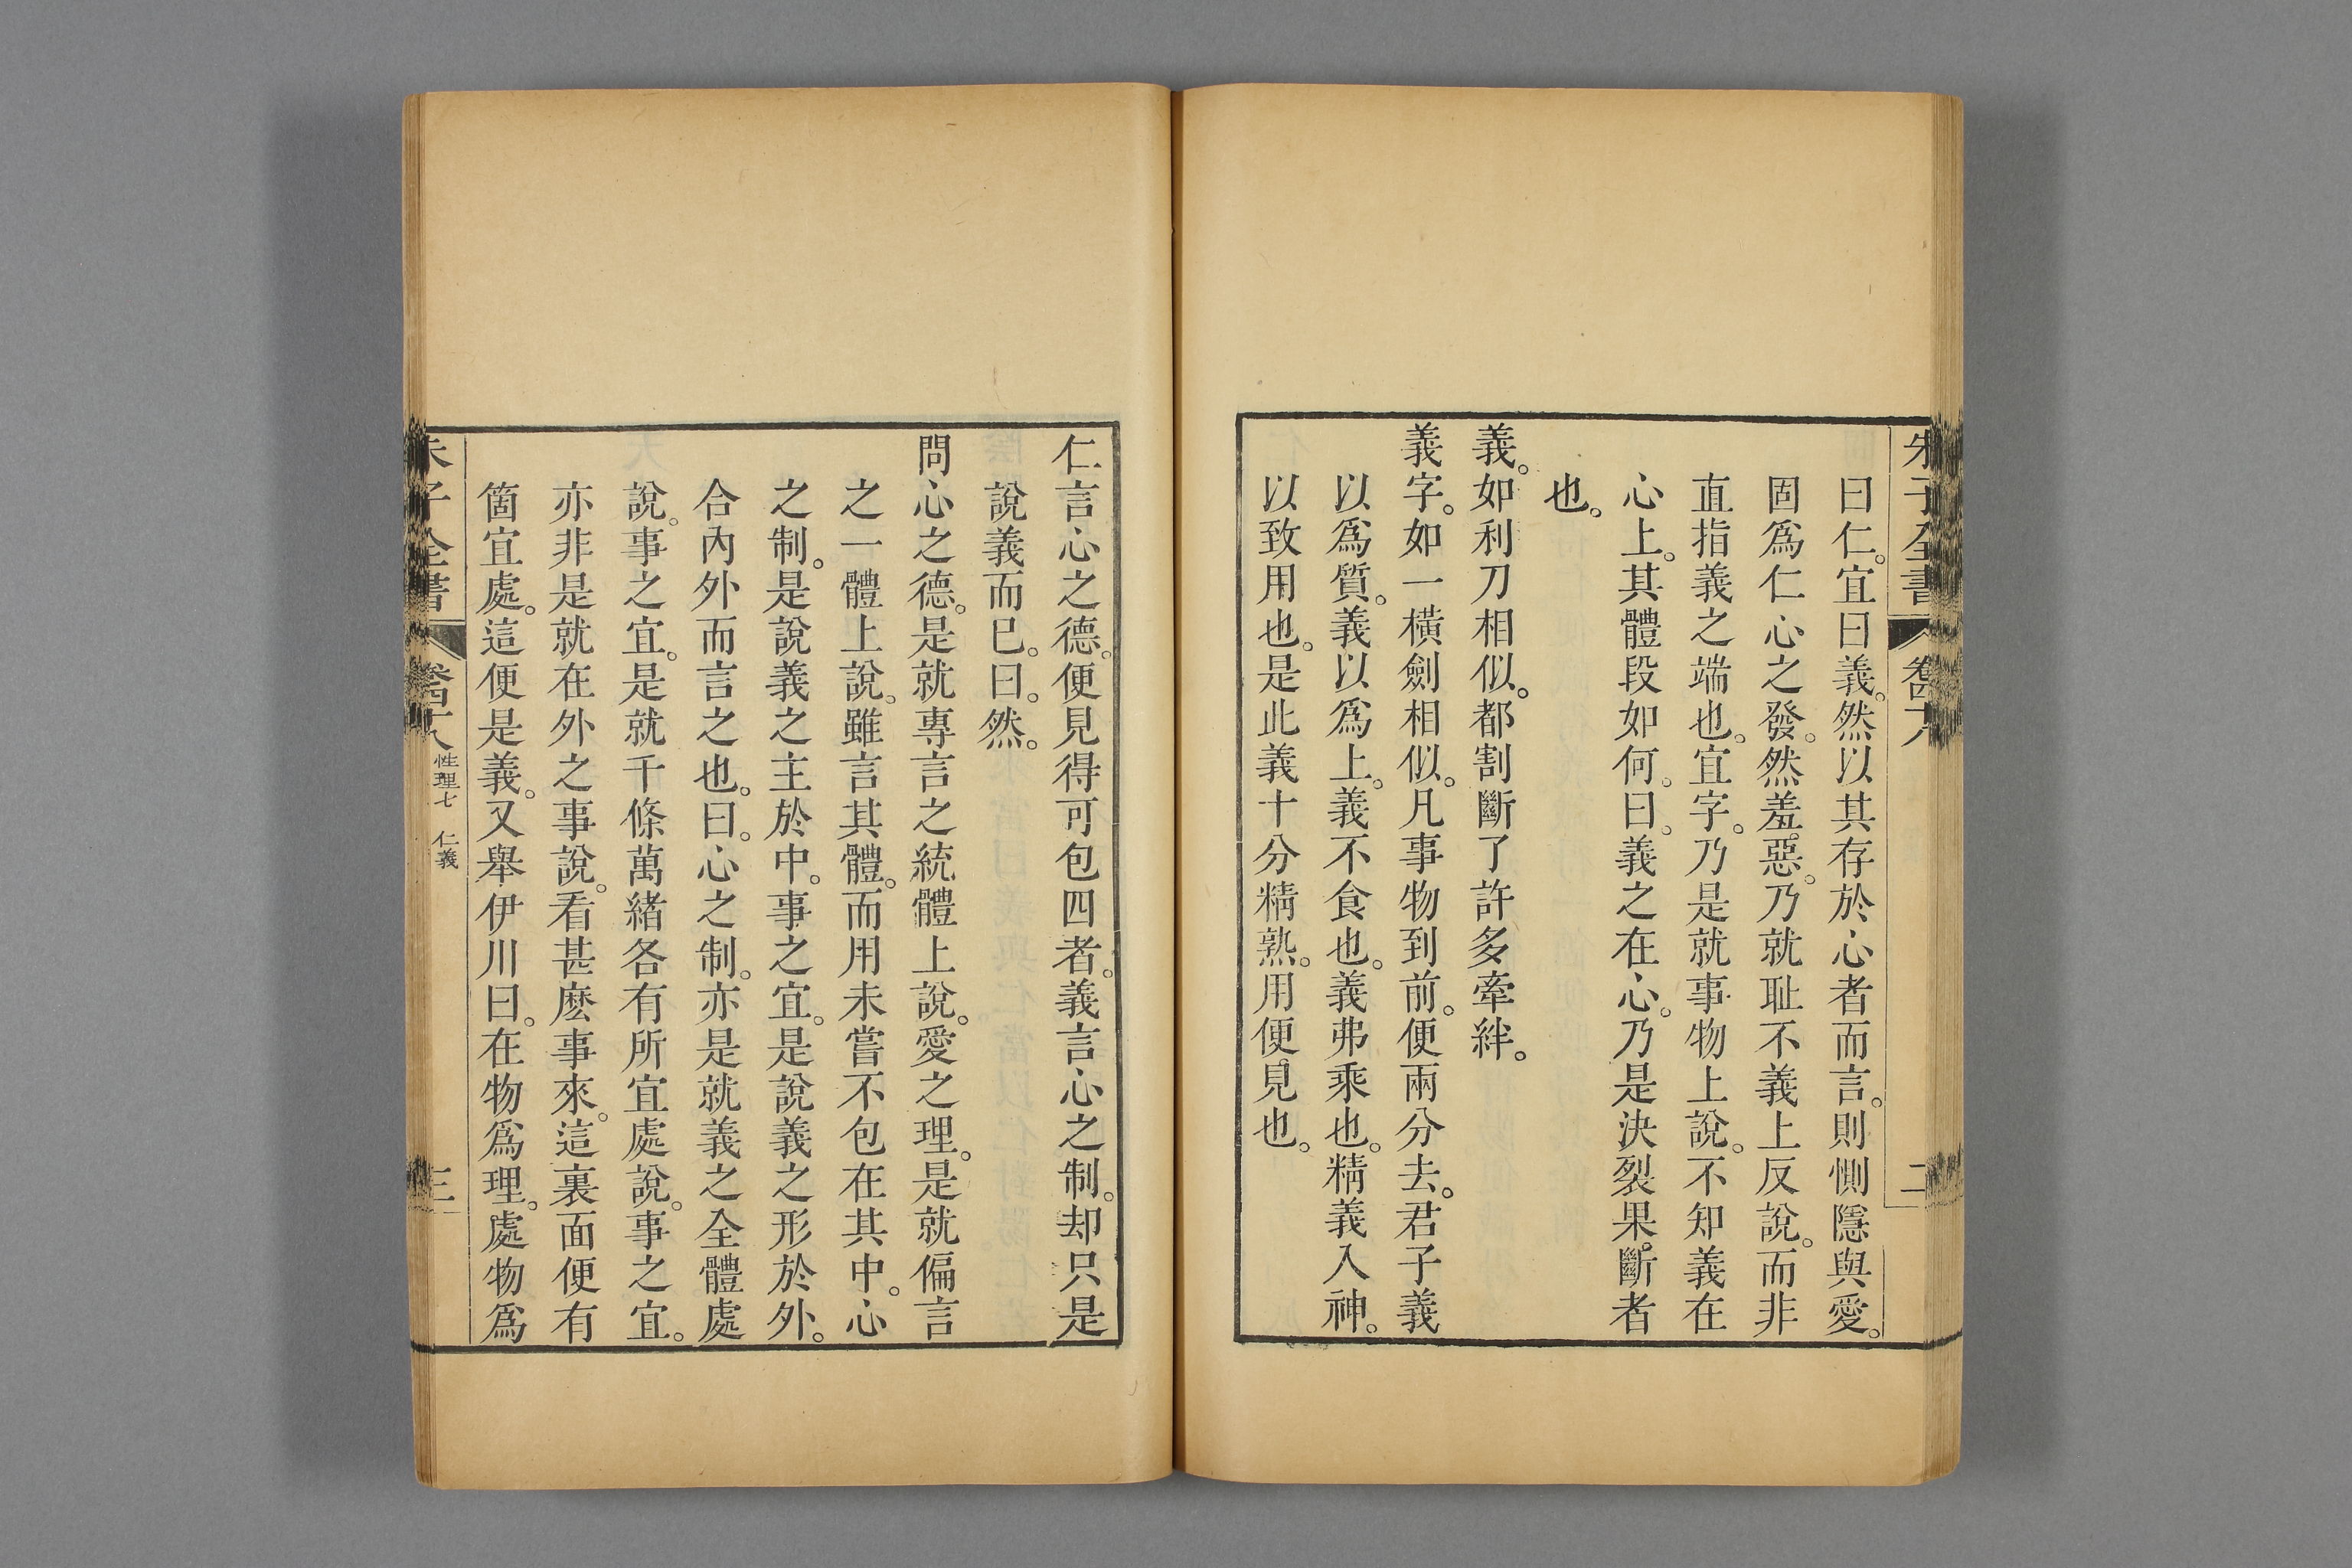 朱子全書
二
曰仁。宜曰義。然以其存於心者而言。則惻隱與愛。
固爲仁心之發。然羞惡。乃就耻不義上反說。而非
直指義之端也。宜字。乃是就事物上說。不知義在
心上。其體段如何。曰。義之在心。乃是決裂果斷者
也。
義。如利刀相似。都割斷了許多牽絆。
義字。如一橫劍相似。凡事物到前。便兩分去。君子義
以爲質。義以爲上。義不食也。義弗乘也。精義入神。
以致用也。是此義十分精熟。用便見也。
仁言心之德。便見得可包四者。義言心之制。却只是
說義而已。曰。然。
問心之德。是就專言之統體上說。愛之理。是就偏言
之一體上說。雖言其體。而用未嘗不包在其中。心
之制。是說義之主於中。事之宜。是說義之形於外。
合內外而言之也。曰。心之制。亦是就義之全體處
說。事之宜。是就千條萬緒各有所宜處說。事之宜。
亦非是就在外之事說。看甚麽事來。這裏面便有
箇宜處。這便是義。又舉伊川曰。在物爲理。處物爲
朱子全書
性理七 仁義
三